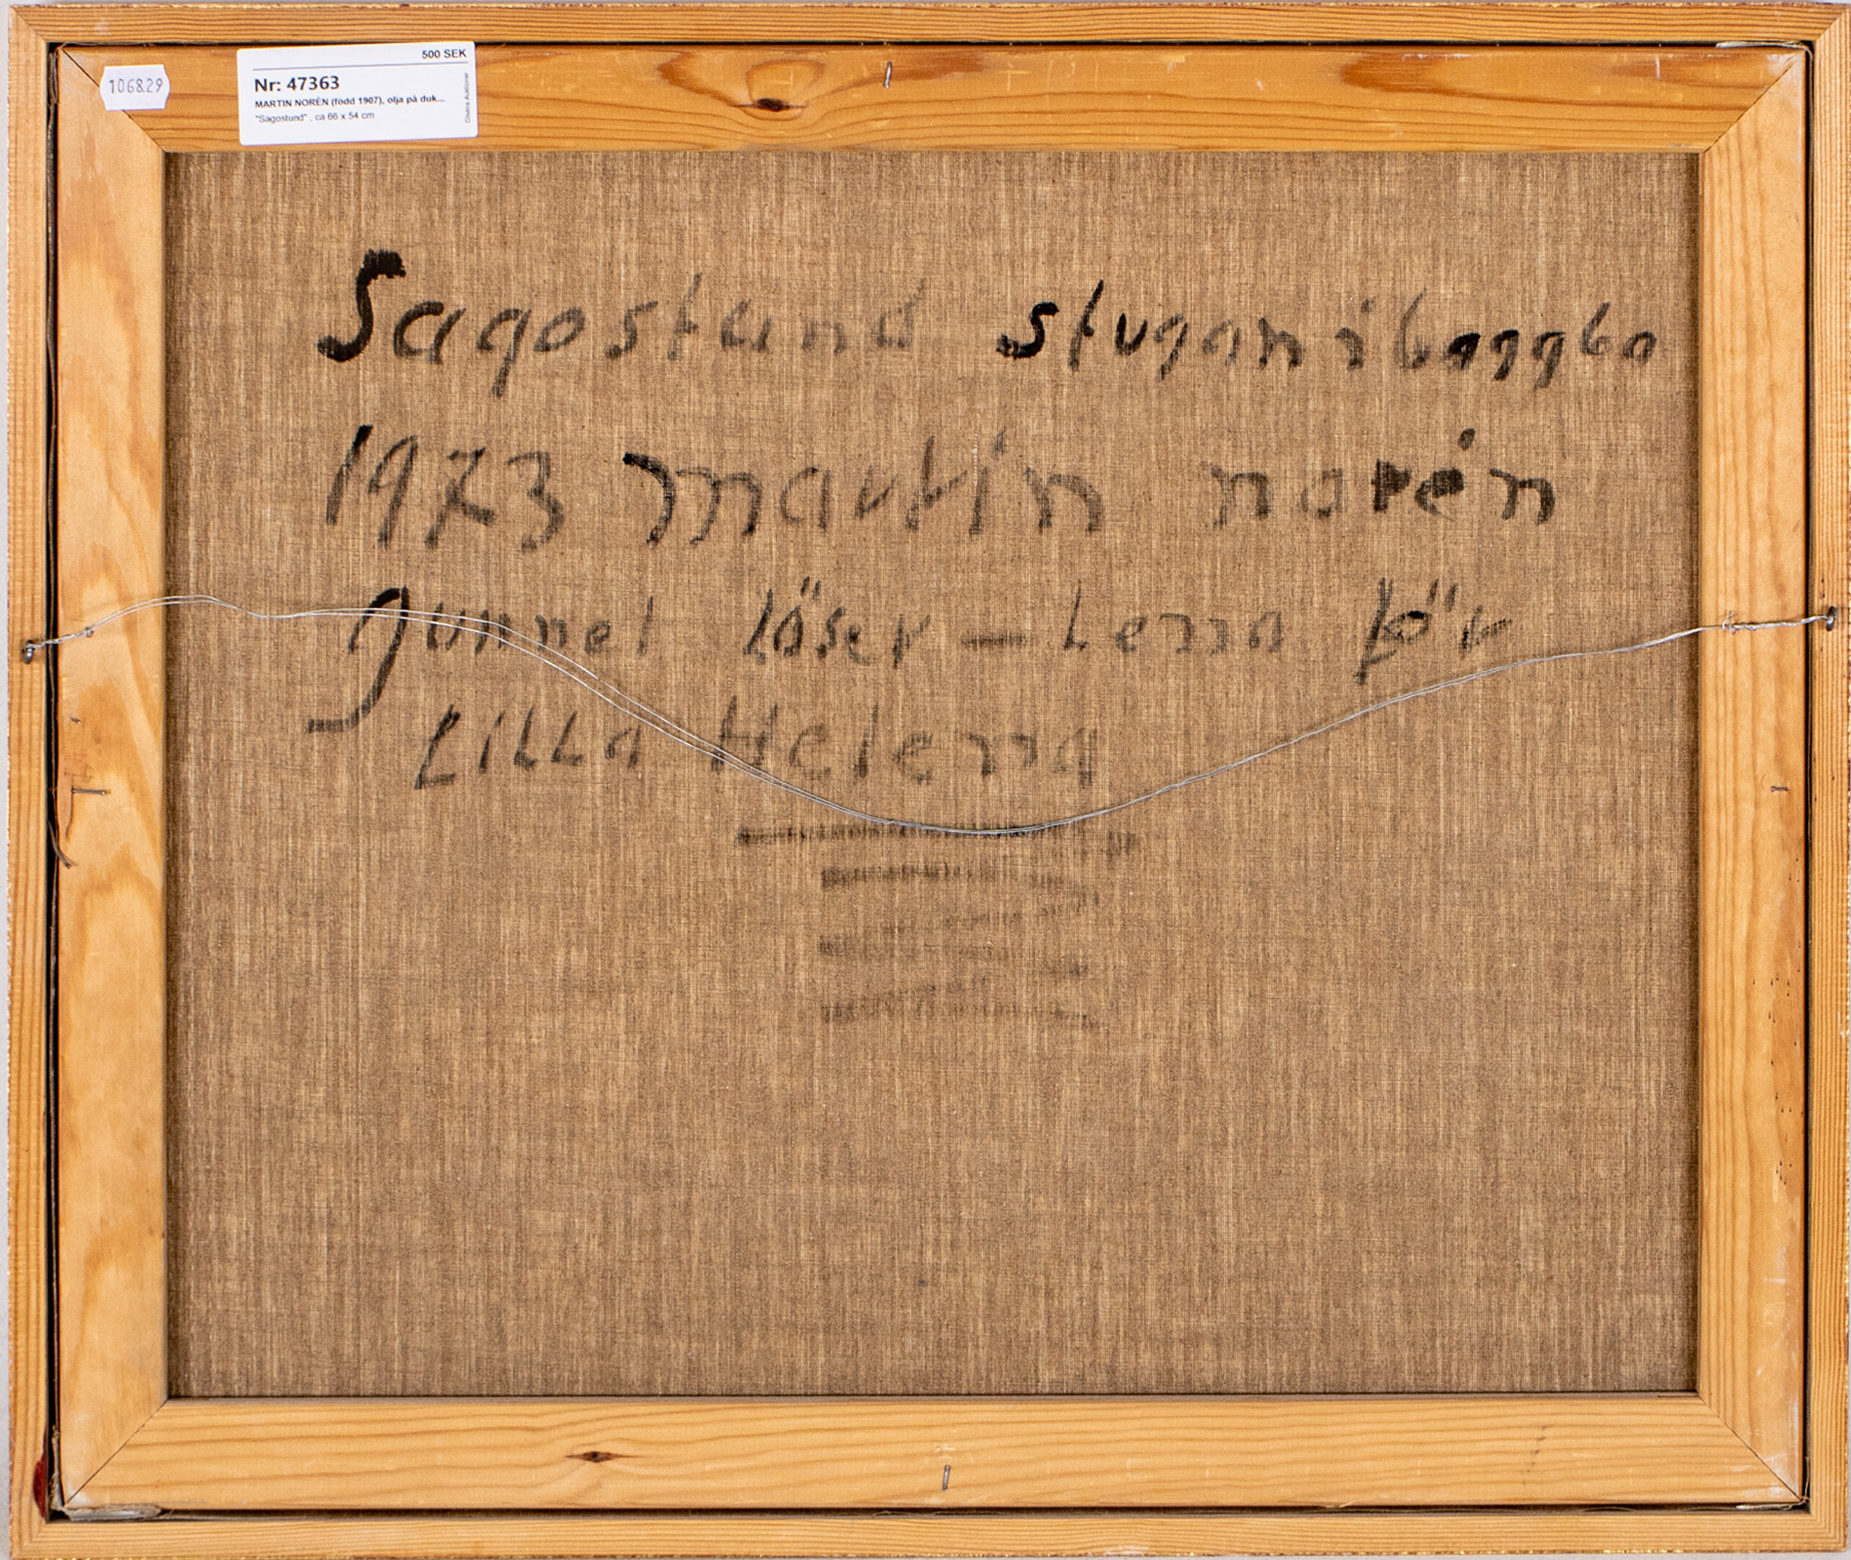 106829
500 SEK
Nr: 47363
MARTIN NORÉN (född 1907), olja på duk...
"Sagostund" , ca 66 x 54 cm
Sagostund stugan i baggbo
1973 martin norén
gunnel löser – Lena för
Lilla Helena